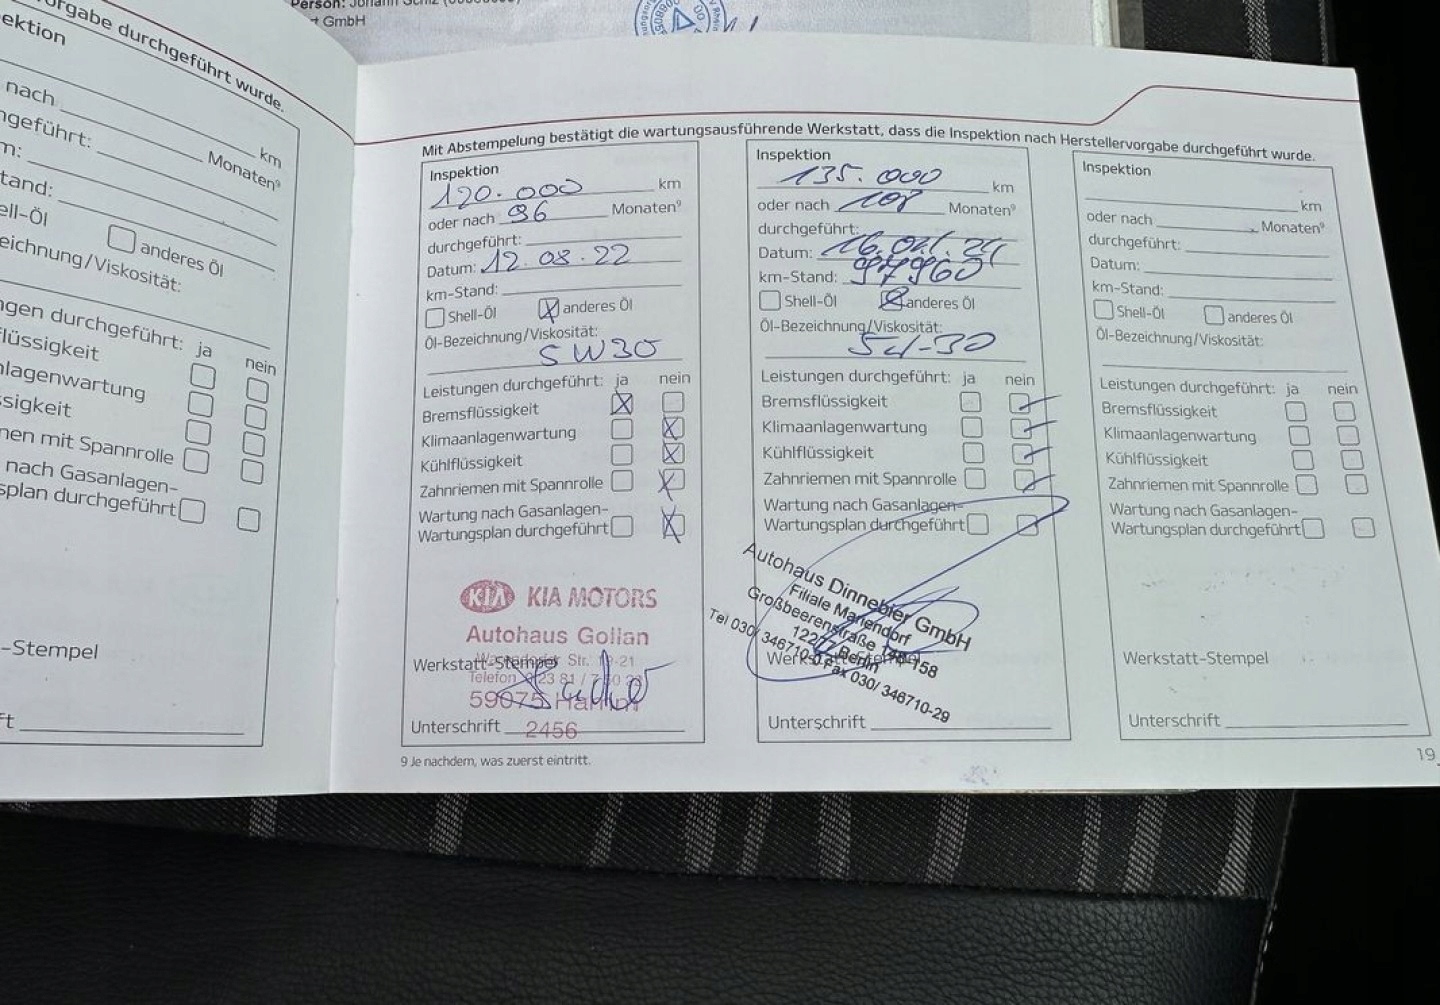 Person: Johann
GmbH
gabe durchgeführt wurde.
ektion
nach
km
Monaten⁹
geführt:
m:
tand:
ell-Öl
anderes Öl
eichnung/Viskosität:
ngen durchgeführt: ja nein
lüssigkeit
nlagenwartung
sigkeit
men mit Spannrolle
nach Gasanlagen-
splan durchgeführt
-Stempel
ft
Mit Abstempelung bestätigt die wartungsausführende Werkstatt, dass die Inspektion nach Herstellervorgabe durchgeführt wurde.
Inspektion
120.000 km
oder nach 96 Monaten⁹
durchgeführt:
Datum: 12.08.22
km-Stand:
Shell-Öl X anderes Öl
Öl-Bezeichnung/Viskosität:
5W30
Leistungen durchgeführt: ja nein
Bremsflüssigkeit X
Klimaanlagenwartung X
Kühlflüssigkeit X
Zahnriemen mit Spannrolle X
Wartung nach Gasanlagen-
Wartungsplan durchgeführt X
KIA KIA MOTORS
Autohaus Gollan
Werkstatt-Stempel Str. 19-21
Telefon
59075 Hamm
Unterschrift 2456
9 Je nachdem, was zuerst eintritt.
Inspektion
135.000 km
oder nach 108 Monaten⁹
durchgeführt:
Datum: 16.04.24
km-Stand: 97960
Shell-Öl anderes Öl
Öl-Bezeichnung/Viskosität:
5W-30
Leistungen durchgeführt: ja nein
Bremsflüssigkeit
Klimaanlagenwartung
Kühlflüssigkeit
Zahnriemen mit Spannrolle
Wartung nach Gasanlagen-
Wartungsplan durchgeführt
Autohaus Dinnebier GmbH
Filiale Mariendorf
Großbeerenstraße 148-158
12277 Berlin
Tel 030/ 346710-0 Fax 030/ 346710-29
Unterschrift
Inspektion
km
oder nach Monaten⁹
durchgeführt:
Datum:
km-Stand:
Shell-Öl anderes Öl
Öl-Bezeichnung/Viskosität:
Leistungen durchgeführt: ja nein
Bremsflüssigkeit
Klimaanlagenwartung
Kühlflüssigkeit
Zahnriemen mit Spannrolle
Wartung nach Gasanlagen-
Wartungsplan durchgeführt
Werkstatt-Stempel
Unterschrift
19